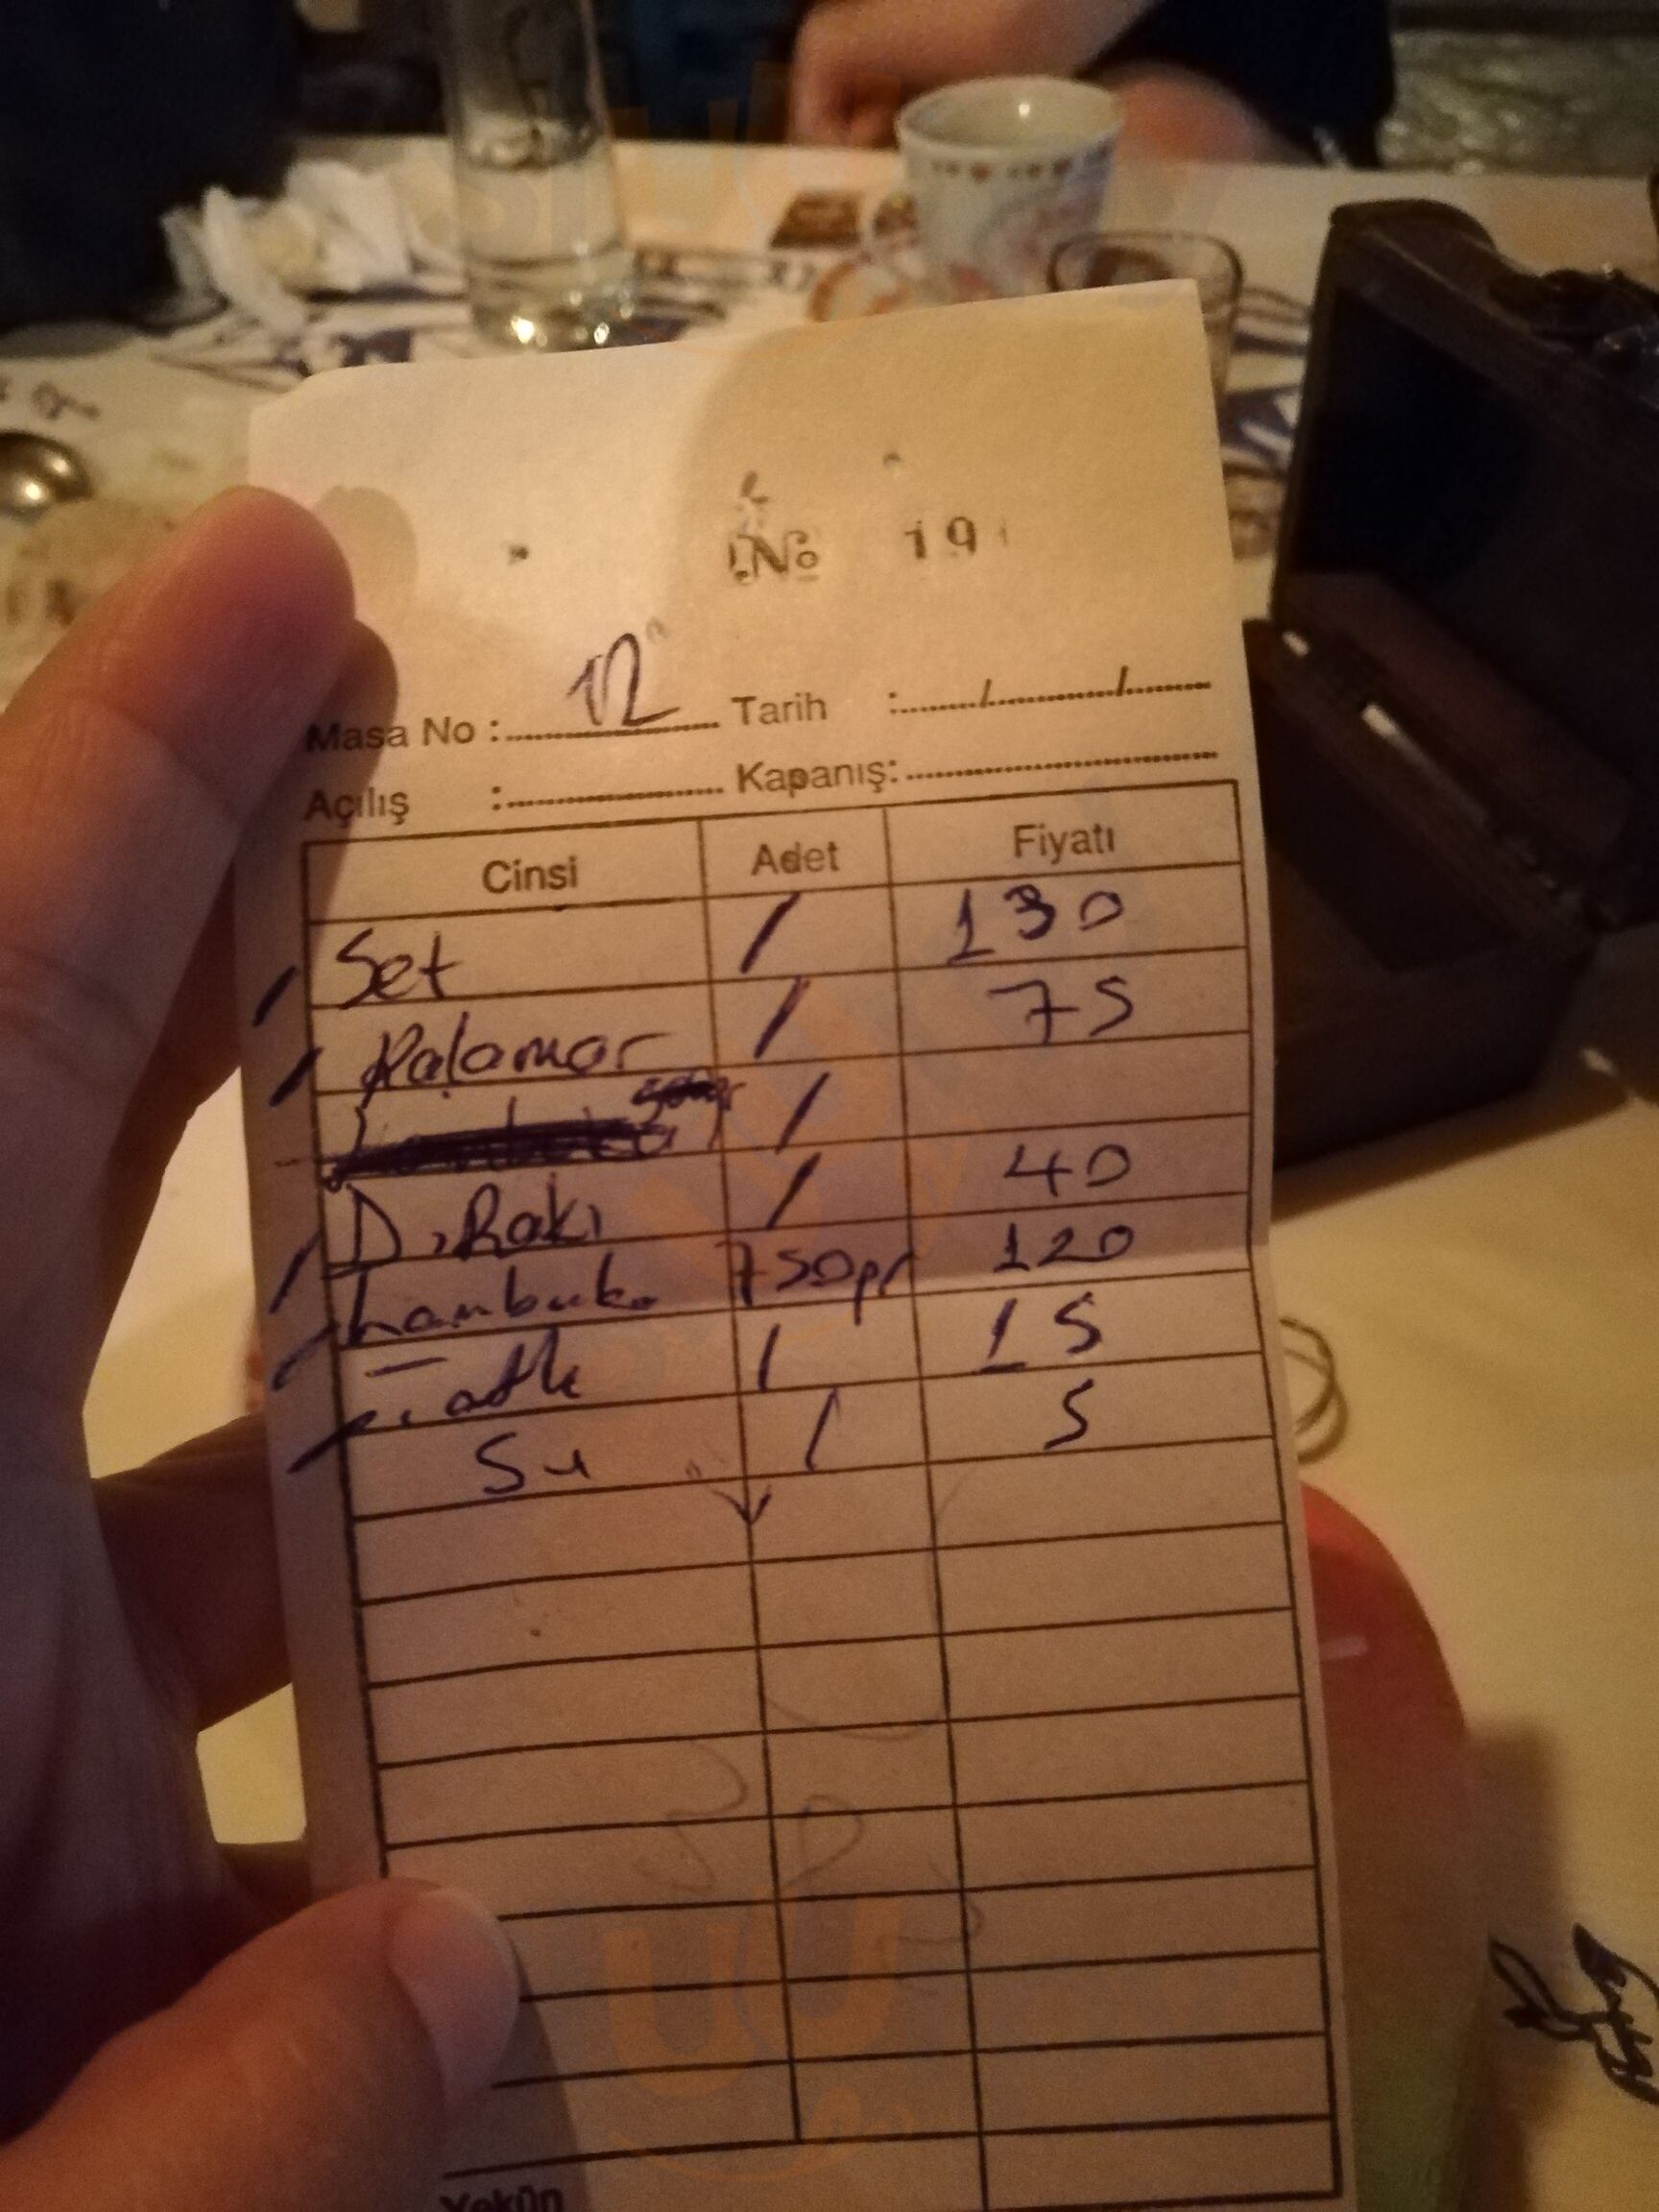 No 19
Masa No : 12 Tarih : / /
Açılış : Kapanış:
Cinsi Adet Fiyatı
Set / 130
Kalamar / 75
/
D. Rakı / 40
Lambuka 750gr 120
/ 15
Su / 5
Yekün